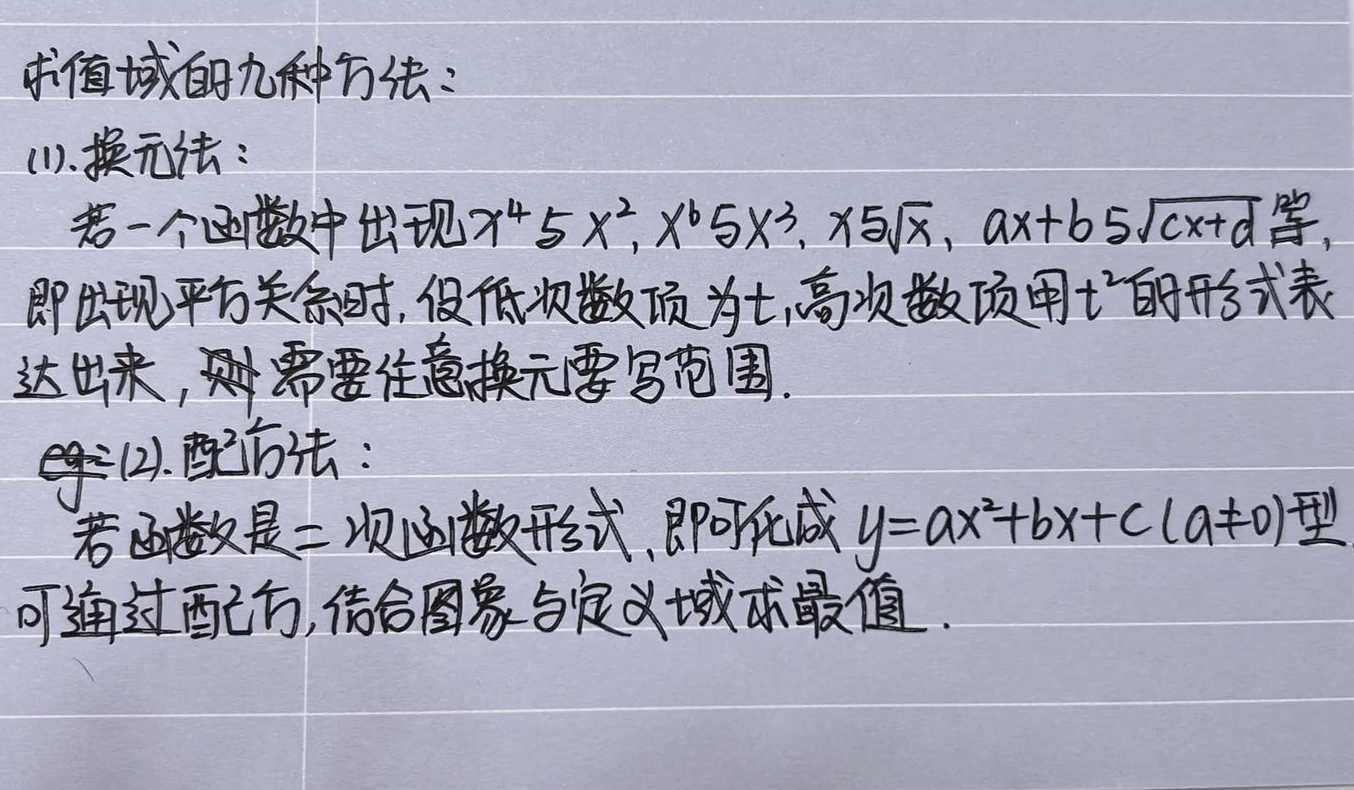 求值域的九种方法：
(1).换元法：
若一个函数中出现x⁴与x²，x⁶与x³、x与√x、ax+b与√(cx+d)等，
即出现平方关系时，设低次数项为t，高次数项用t²的形式表
达出来，需要任意换元要写范围.
(2).配方法：
若函数是二次函数形式、即可化成y=ax²+bx+c(a≠0)型
可通过配方，结合图象与定义域求最值.